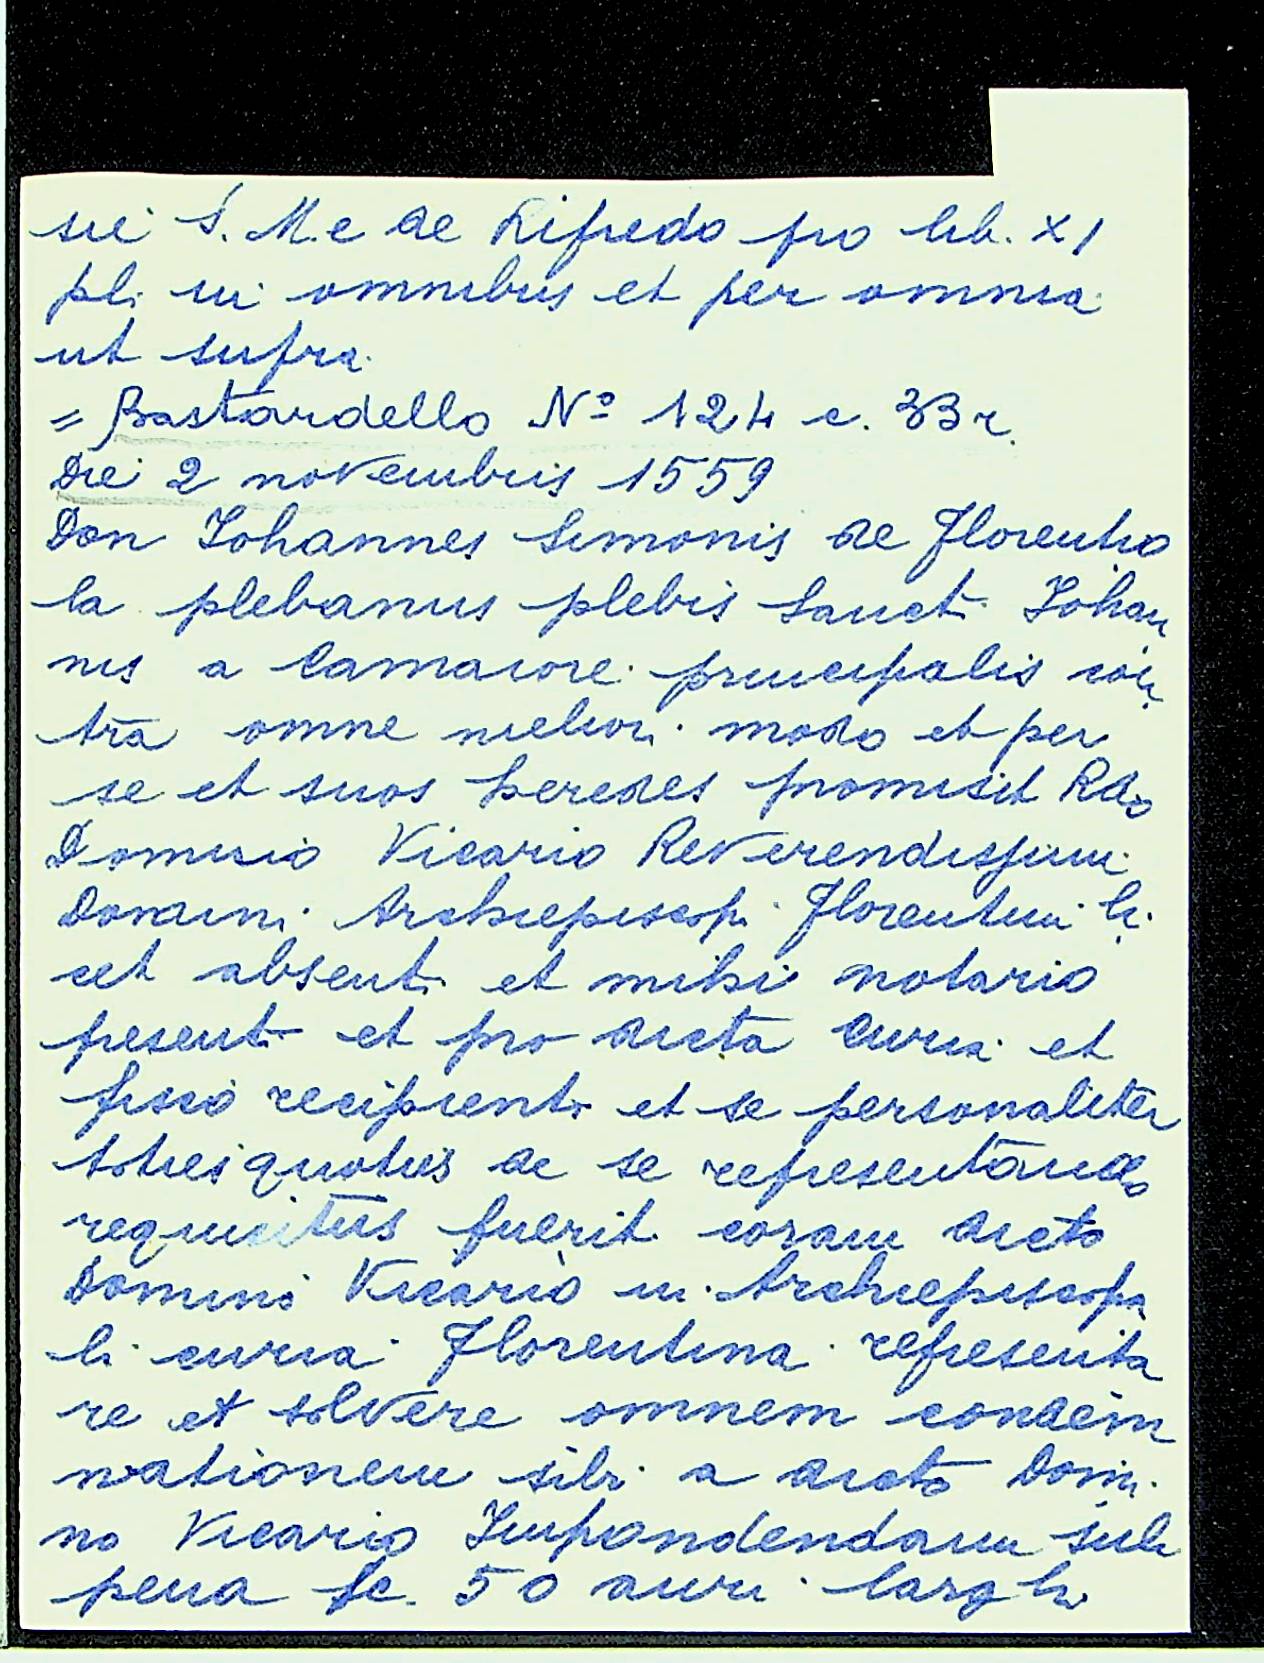 sie S. M.e de Rifredo pro lib. XI
pl. in omnibus et per omnia
ut supra.
= Bastardello Nº 124 c. 33r.
Die 2 novembris 1559
Don Iohannes Simonis de Florentio
la plebanus plebis Sanct. Iohan
nis a Camaiore principalis con
tra omne melior. modo et per
se et suos heredes promisit Rdo
Domino Vicario Reverendissimi
Domini Archiepiscopi Florentini li
cet absent. et mihi notario
present. et pro dicta curia et
fisco recipient. et se personaliter
totiesquoties de se representando
requisitus fuerit coram dicto
Domino Vicario in Archiepiscopa
li curia Florentina representa
re et solvere omnem condem
nationem sibi a dicto Domi
no Vicario Impondendam sub
pena fc. 50 auri largh.